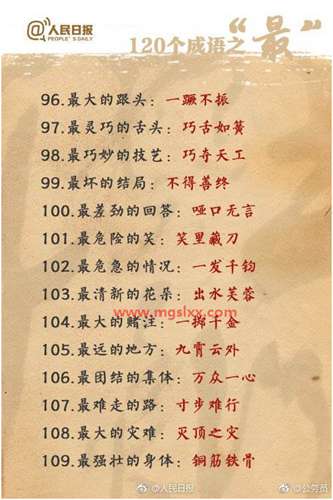 @人民日报
PEOPLE'S DAILY
120个成语之“最”
96.最大的跟头：一蹶不振
97.最灵巧的舌头：巧舌如簧
98.最巧妙的技艺：巧夺天工
99.最坏的结局：不得善终
100.最差劲的回答：哑口无言
101.最危险的笑：笑里藏刀
102.最危急的情况：一发千钧
103.最清新的花朵：出水芙蓉
www.mgslxx.com
104.最大的赌注：一掷千金
105.最远的地方：九霄云外
106.最团结的集体：万众一心
107.最难走的路：寸步难行
108.最大的灾难：灭顶之灾
109.最强壮的身体：铜筋铁骨
@人民日报
@公务员